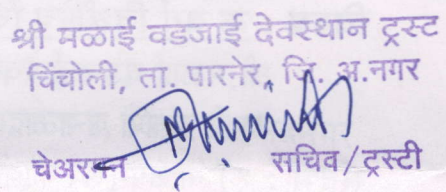 श्री मळाई वडजाई देवस्थान ट्रस्ट
चिंचोली, ता. पारनेर, जि. अ.नगर
चेअरमन सचिव/ट्रस्टी